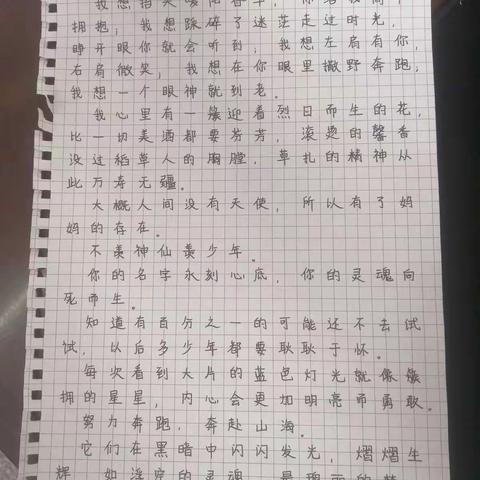 我想指尖暖阳春草，你者我间
拥抱，我想踩碎了迷茫走过时光，
睁开眼你就会听到，我想左肩有你，
右肩微笑，我想在你眼里撒野奔跑，
我想一个眼神就到老。
我心里有一簇迎着烈日而生的花，
比一切美酒都要芬芳，滚烫的馨香
淹过稻草人的胸膛，草扎的精神从
此万寿无疆。
大概人间没有天使，所以有了妈
妈的存在。
不羡神仙羡少年。
你的名字永刻心底，你的灵魂向
死而生。
知道有百分之一的可能还不去试
试，以后多少年都要耿耿于怀。
每次看到大片的蓝色灯光就像簇
拥的星星，内心会更加明亮而勇敢。
努力奔跑，奔赴山海。
它们在黑暗中闪闪发光，熠熠生
辉，如深空的灵魂，是瑰丽的梦